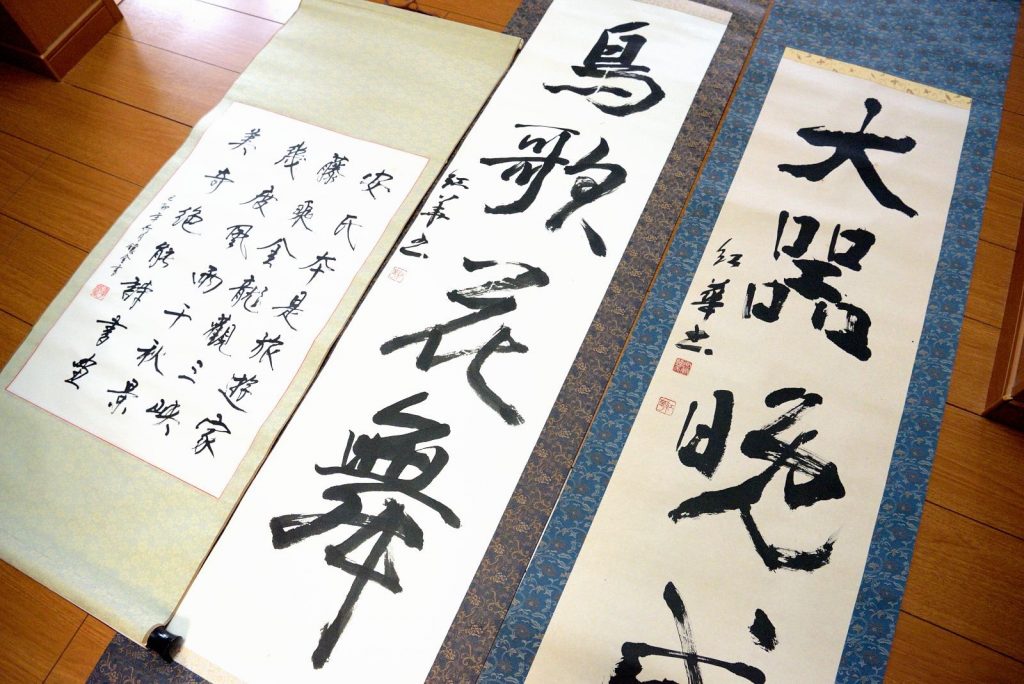 大器晩成
紅華書
鳥歌花舞
紅華書
安氏本是旅遊家
藤乘金龍觀三峽
幾度風雨千秋景
美奇絶能詩書畫